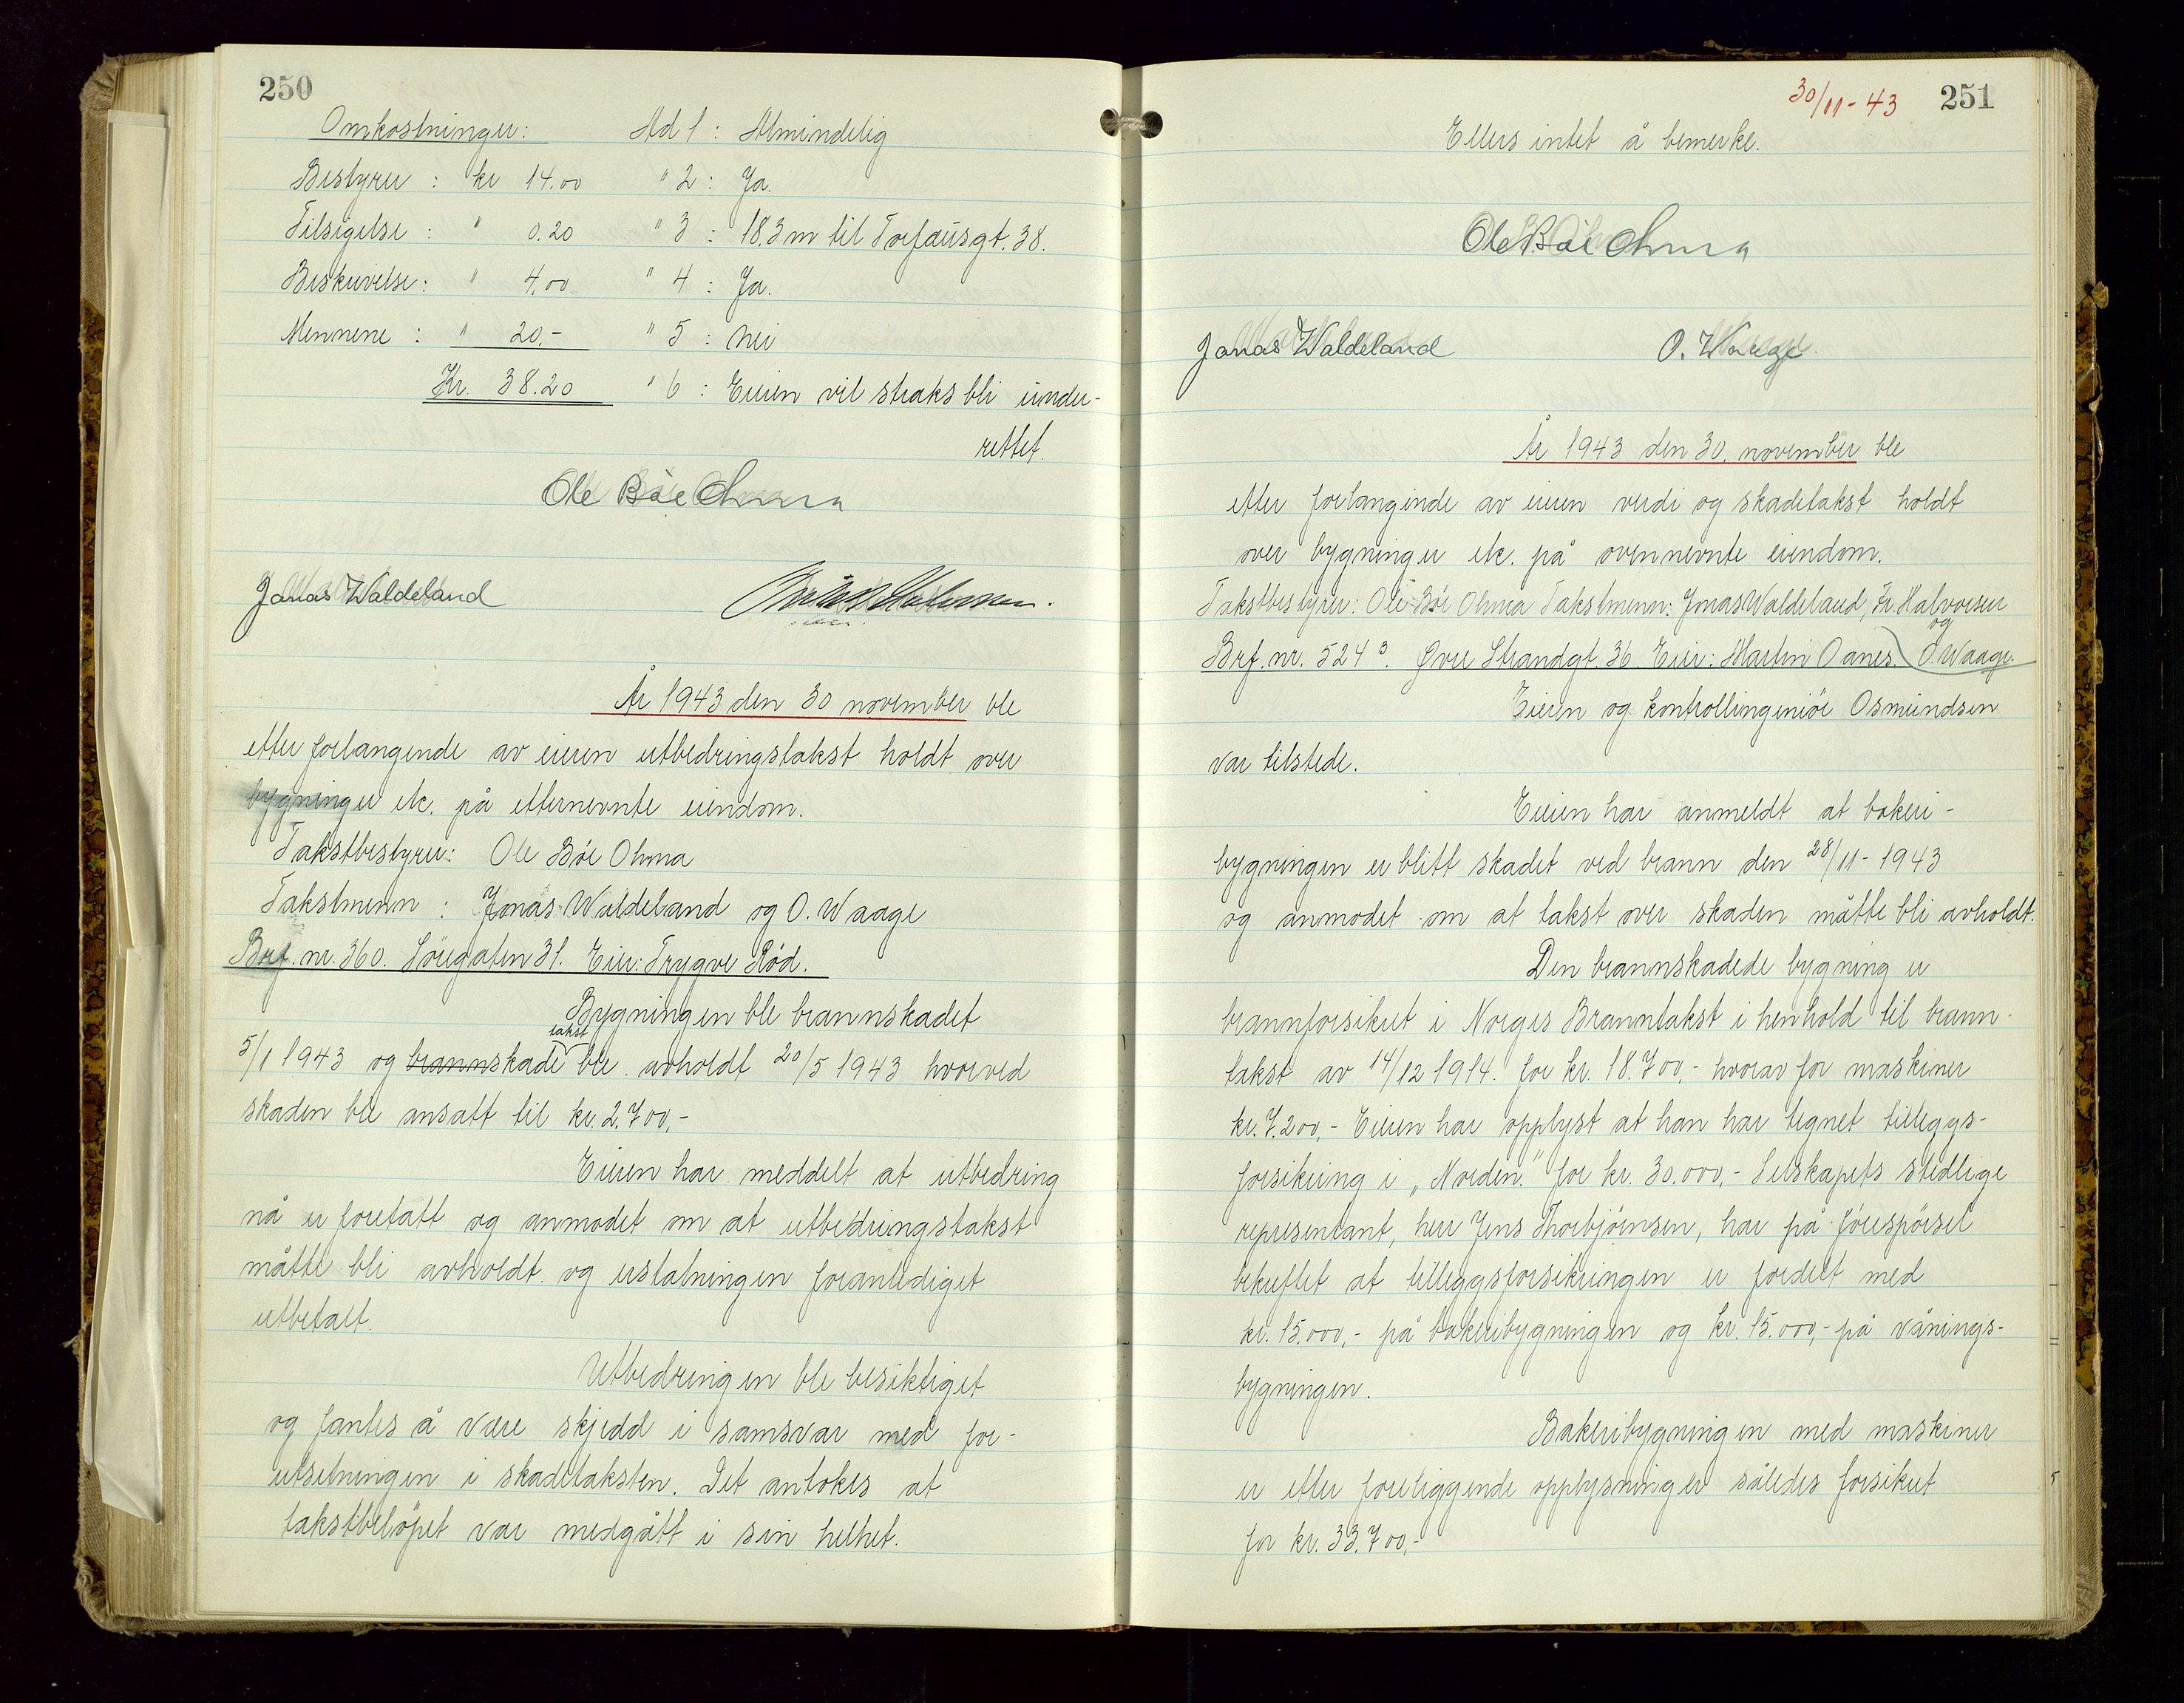 250
Omkostninger: Ad 1 : Almindelig
Bestyrer : kr 14.00 " 2 : Ja.
Tilsigelse : " 0.20 " 3 : 18.3 m til Torfæusgt. 38.
Beskrivelse : " 4.00 " 4 : Ja.
Mennene : " 20.- " 5 : nei
Kr. 38.20 " 6 : Eieren vil straks bli under-
rettet.
Ole Bøe Ohma
Jonas Waldeland
År 1943 den 30 november ble
etter forlangende av eieren utbedringstakst holdt over
bygninger etc. på etternevnte eiendom.
Takstbestyrer: Ole Bøe Ohma
Takstmenn : Jonas Waldeland og O. Waage
Brf. nr. 360. Söregaten 31. Eier: Trygve Röd.
Bygningen ble brannskadet
takst
5/1 1943 og brannskade ble avholdt 20/5 1943 hvorved
skaden ble ansatt til kr. 2.700,-
Eieren har meddelt at utbedring
nå er foretatt og anmodet om at utbedringstakst
måtte bli avholdt og erstatningen foranlediget
utbetalt.
Utbedringen ble besiktiget
og fantes å være skjedd i samsvar med for-
utsetningen i skadetaksten. Det antokes at
takstbelöpet var medgått i sin helhet.
30/11-43 251
Ellers intet å bemerke.
Ole Bøe Ohma
Jonas Waldeland O. Waage
År 1943 den 30. november ble
etter forlangende av eieren verdi og skadetakst holdt
over bygninger etc. på ovennevnte eiendom.
Takstbestyrer: Ole Bøe Ohma Takstmenn: Jonas Waldeland, Fr. Halvorsen
og
Brf. nr. 524³. Øvre Strandgt 36 Eier: Martin Oanes. O. Waage.
Eieren og kontrollingeniør Osmundsen
var tilstede.
Eieren har anmeldt at bakeri-
bygningen er blitt skadet ved brann den 28/11-1943
og anmodet om at takst over skaden måtte bli avholdt.
Den brannskadede bygning er
brannforsikret i Norges Branntakst i henhold til brann-
takst av 14/12 1914. for kr. 18.700,- hvorav for maskiner
kr. 7.200,- Eieren har opplyst at han har tegnet tilleggs-
forsikring i "Norden" for kr. 30.000,- Selskapets stedlige
representant, herr Jens Thorbjörnsen, har på förespörsel
bekreftet at tilleggsforsikringen er fordelt med
kr. 15.000,- på bakeribygningen og kr. 15.000,- på vånings-
bygningen.
Bakeribygningen med maskiner
er etter foreliggende opplysninger således forsikret
for kr. 33.700,-